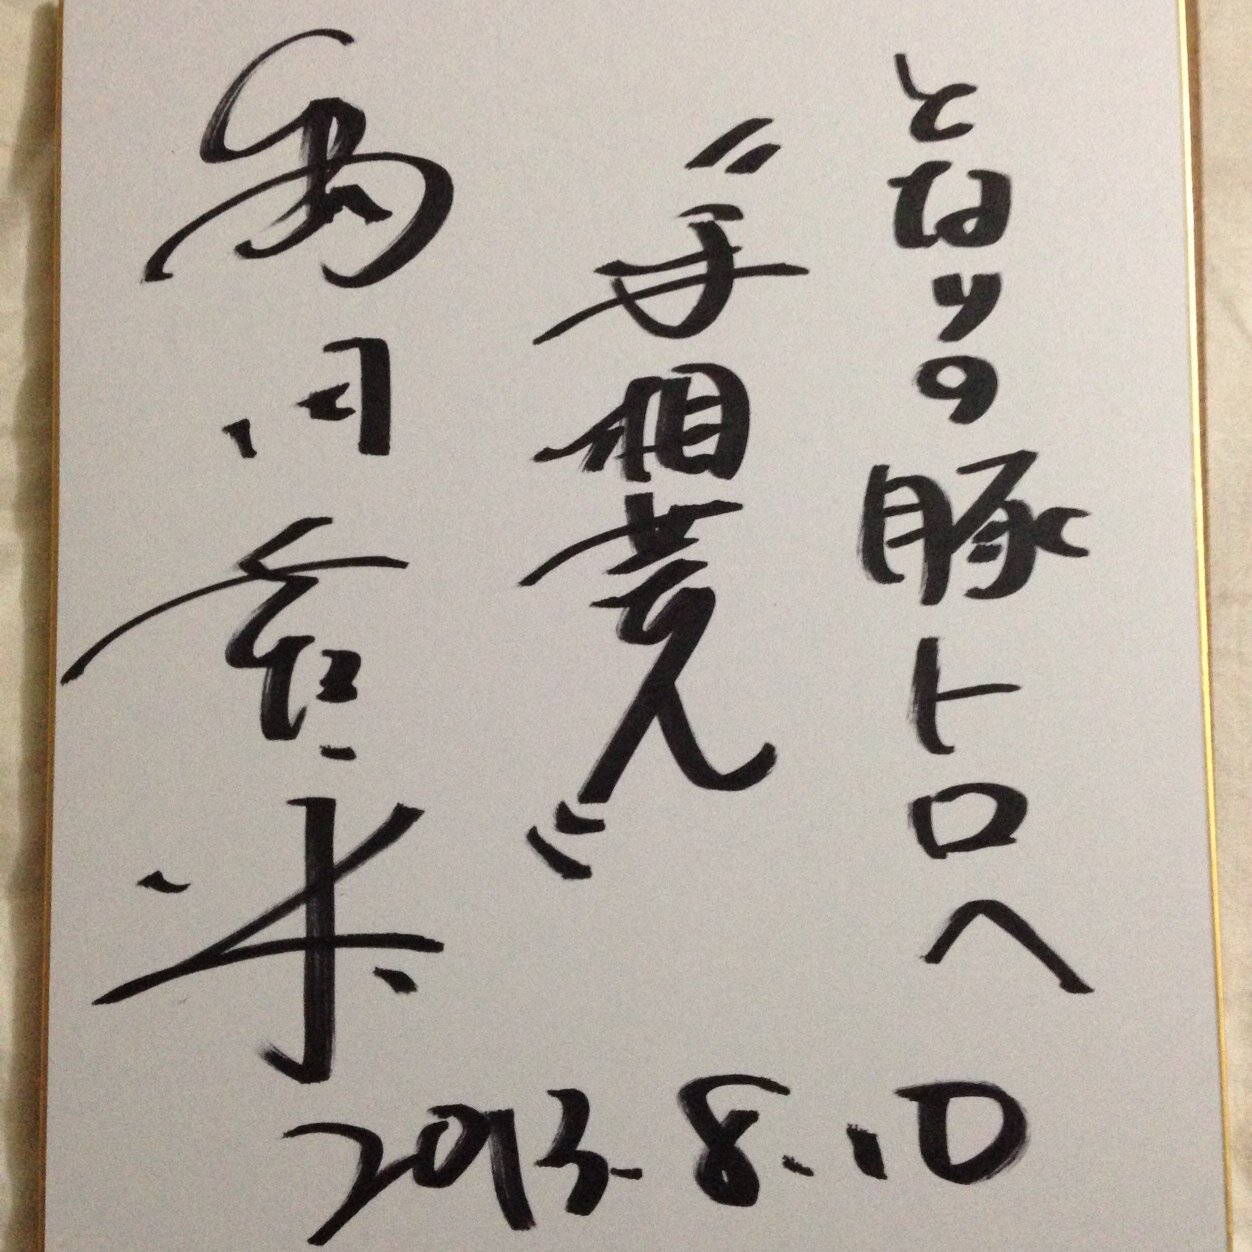 となりの豚トロへ
〝手相芸人〟
島田秀平
2013.8.10